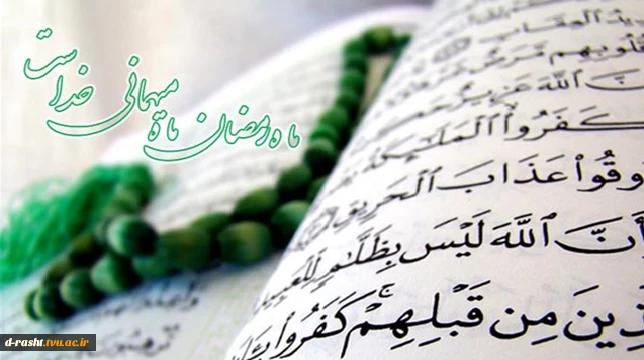 ماه رمضان ماه میهمانی خداست
يدُ الْعِقَابِ
قُلُوبِهِم مَّرَضٌ
نَّ ٱللَّهَ عَزِيزٌ
كَفَرُوا۟ ٱلْمَلَٰٓئِكَةُ
وقُوا۟ عَذَابَ ٱلْحَرِيقِ
أَنَّ ٱللَّهَ لَيْسَ بِظَلَّٰمٍ لِّلْعَبِيدِ
ذِينَ مِن قَبْلِهِمْ كَفَرُوا۟
d-rasht.tvu.ac.ir